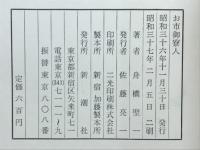 お市御寮人
昭和三十六年十一月三十日 発行
昭和三十七年二月五日 二刷
著者 舟橋聖一
発行者 佐藤亮一
印刷所 二光印刷株式会社
製本所 新宿加藤製本所
発行所 新潮社
東京都新宿区矢来町七一
電話東京(341)七一一一～九
振替東京八〇八番
定価六百円